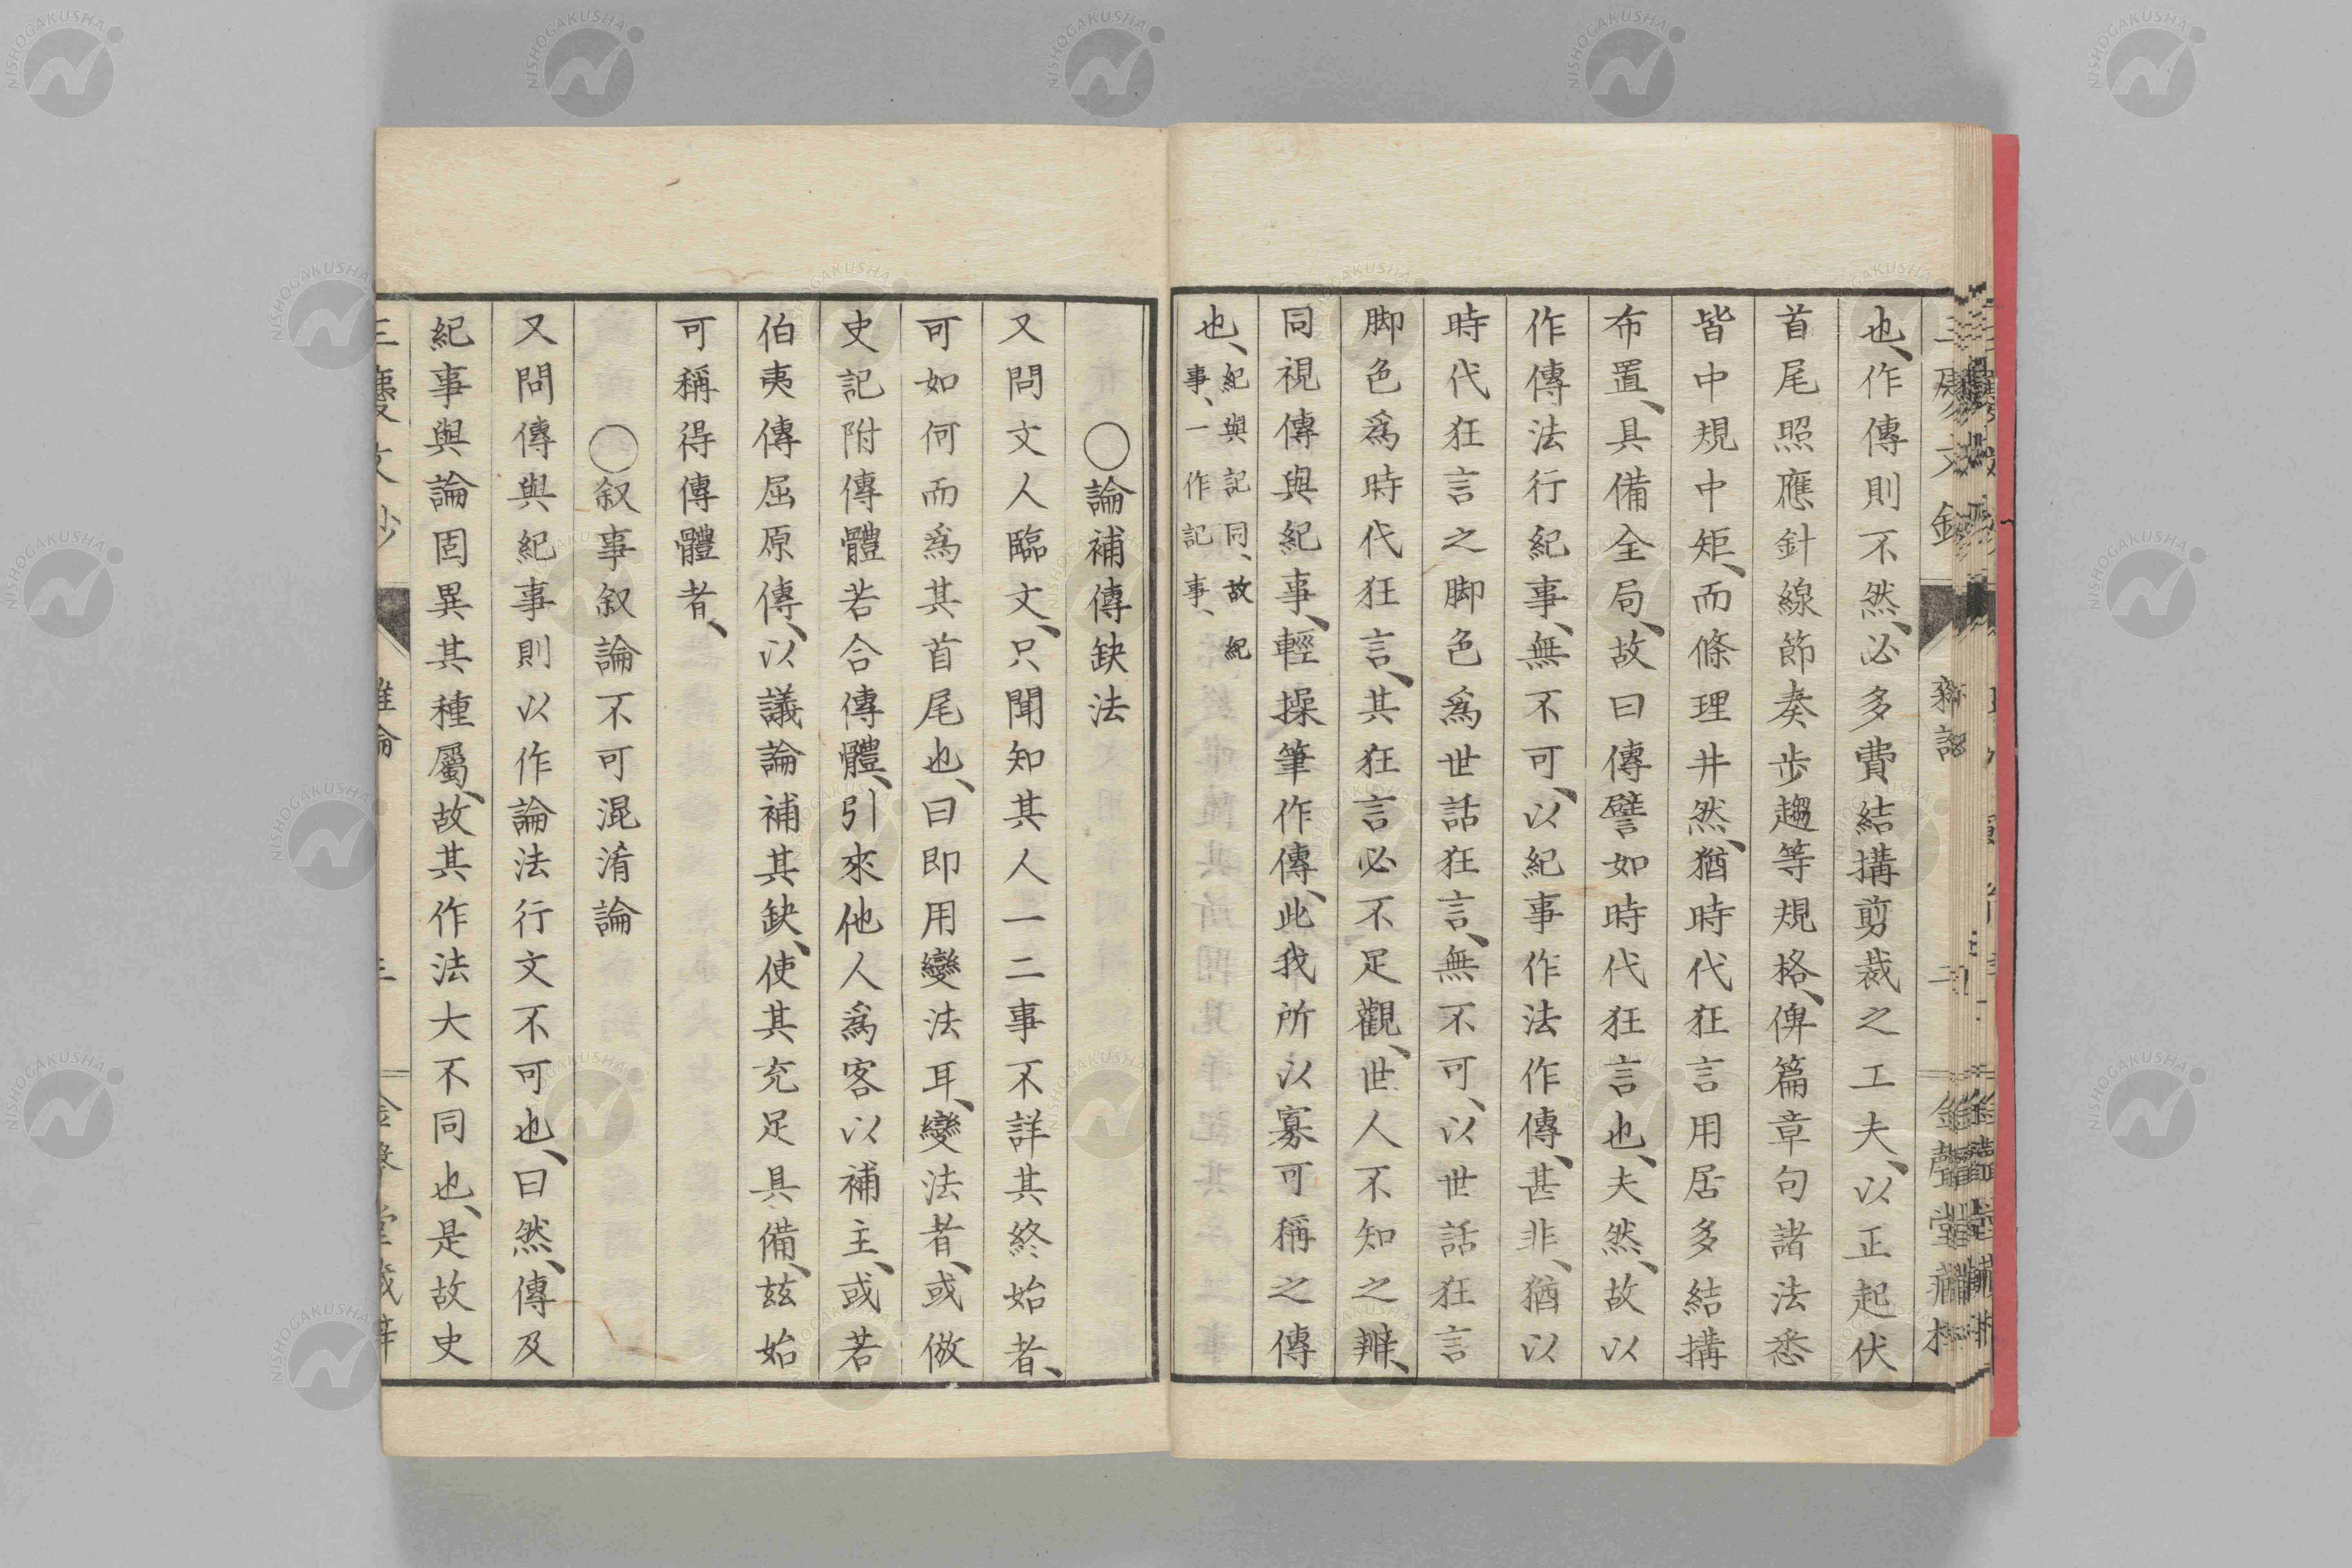 也、作傳則不然、必多費結搆剪裁之工夫、以正起伏
首尾照應針線節奏步趨等規格、俾篇章句諸法悉
皆中規中矩、而條理井然、猶時代狂言用居多結搆
布置、具備全局、故曰傳譬如時代狂言也、夫然、故以
作傳法行紀事、無不可、以紀事作法作傳、甚非、猶以
時代狂言之脚色爲世話狂言、無不可、以世話狂言
脚色爲時代狂言、其狂言必不足觀、世人不知之辨、
同視傳與紀事、輕操筆作傳、此我所以寡可稱之傳
也、紀與記同、故紀
事、一作記事、
〇論補傳缺法
又問文人臨文、只聞知其人一二事不詳其終始者、
可如何而爲其首尾也、曰即用變法耳、變法者、或倣
史記附傳體若合傳體、引來他人爲客以補主、或若
伯夷傳屈原傳、以議論補其缺、使其充足具備、茲始
可稱得傳體者、
〇叙事叙論不可混淆論
又問傳與紀事則以作論法行文不可也、曰然、傳及
紀事與論固異其種屬、故其作法大不同也、是故史
NISHOGAKUSHA